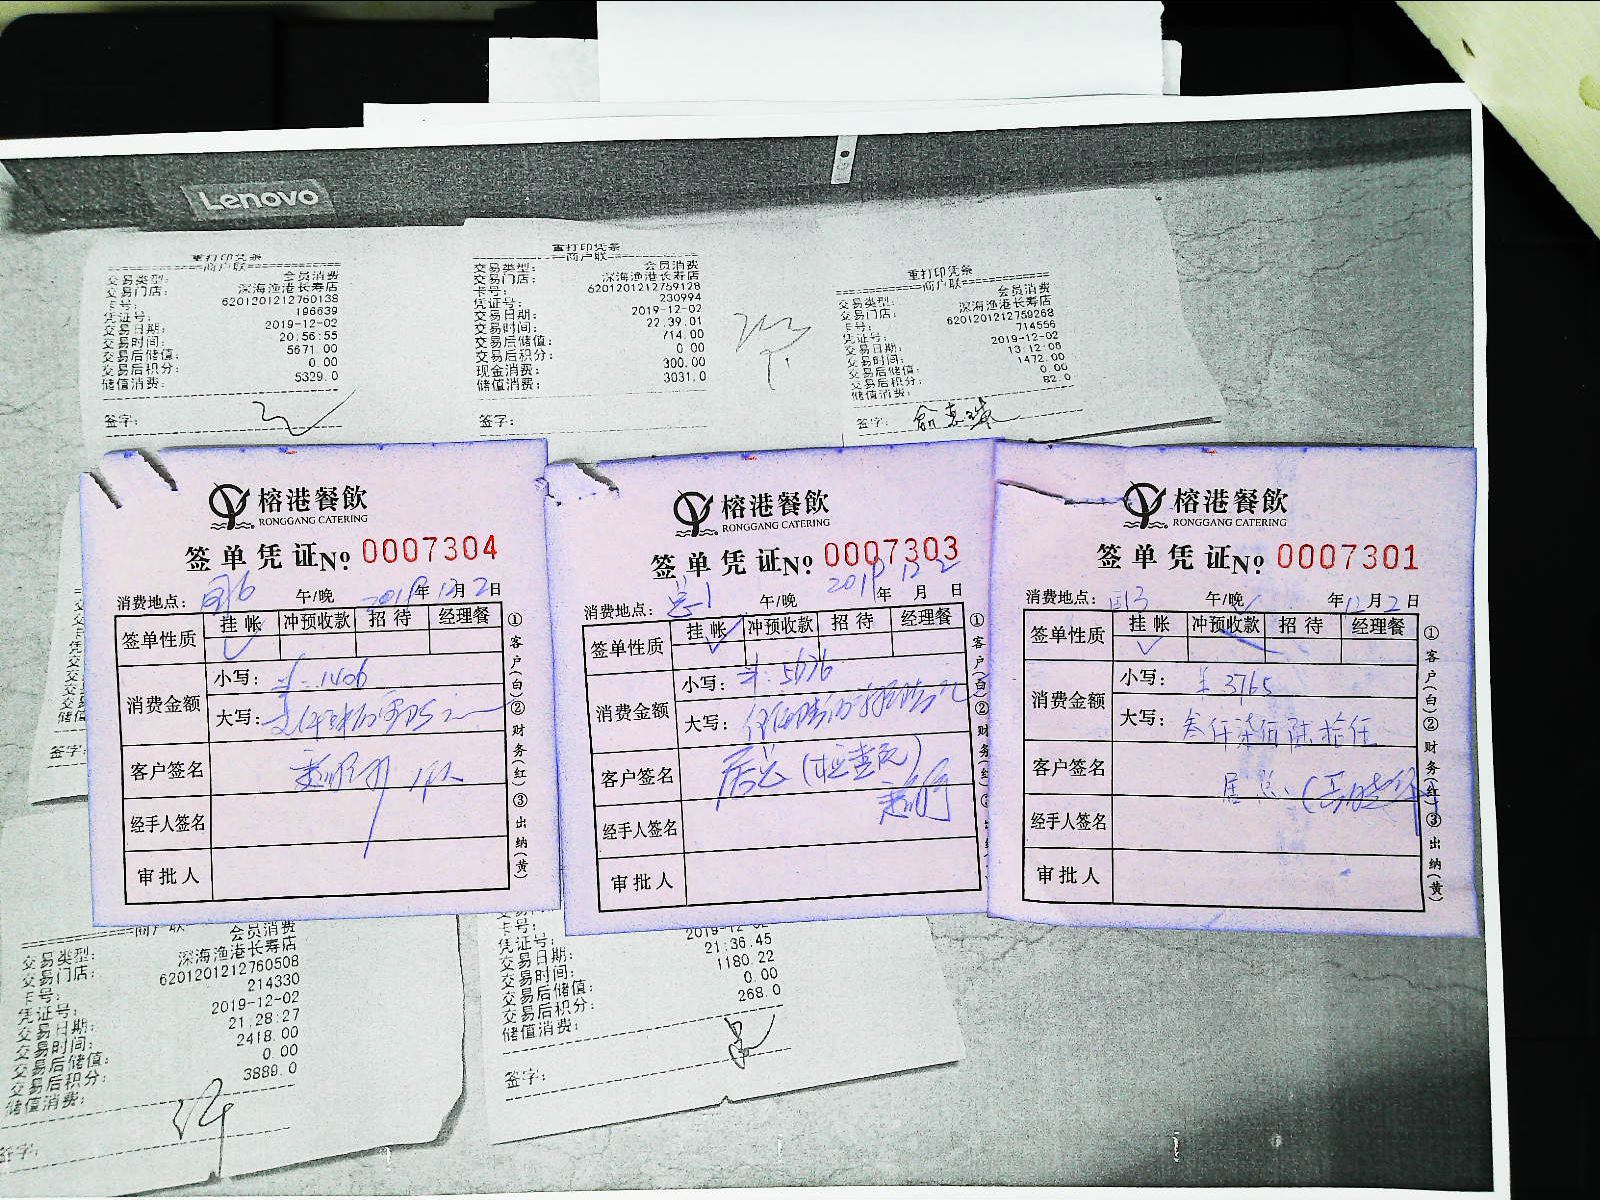 Lenovo
重打印凭条
商户联
交易类型: 会员消费
交易门店: 深海渔港长寿店
卡号: 6201201212760138
凭证号: 196639
交易日期: 2019-12-02
交易时间: 20:56:55
交易后储值: 5671.00
交易后积分: 0.00
储值消费: 5329.0
签字:
重打印凭条
商户联
交易类型: 会员消费
交易门店: 深海渔港长寿店
卡号: 6201201212759128
凭证号: 230994
交易日期: 2019-12-02
交易时间: 22.39.01
交易后储值: 714.00
交易后积分: 0.00
现金消费: 300.00
储值消费: 3031.0
签字:
重打印凭条
商户联
交易类型: 会员消费
交易门店: 深海渔港长寿店
卡号: 6201201212759268
凭证号: 714556
交易日期: 2019-12-02
交易时间: 13:12:06
交易后储值: 1472.00
交易后积分: 0.00
储值消费: 82.0
签字:
榕港餐飲
RONGGANG CATERING
签单凭证No. 0007304
消费地点: 午/晚 2019年12月2日
签单性质 挂帐 冲预收款 招待 经理餐
消费金额 小写: ¥:1406
大写:
客户签名
经手人签名
审批人
①客户(白)②财务(红)③出纳(黄)
榕港餐飲
RONGGANG CATERING
签单凭证No. 0007303
消费地点: 午/晚 2019年12月2日
签单性质 挂帐 冲预收款 招待 经理餐
消费金额 小写: ¥:5676
大写:
客户签名 居总
经手人签名
审批人
①客户(白)②财务(红
榕港餐飲
RONGGANG CATERING
签单凭证No. 0007301
消费地点: 午/晚 年12月2日
签单性质 挂帐 冲预收款 招待 经理餐
消费金额 小写: ¥ 3765
大写: 叁仟柒佰陆拾伍
客户签名 居总
经手人签名
审批人
①客户(白)②财务(红)③出纳(黄)
商户联
交易类型: 会员消费
交易门店: 深海渔港长寿店
卡号: 6201201212760508
凭证号: 214330
交易日期: 2019-12-02
交易时间: 21:28:27
交易后储值: 2418.00
交易后积分: 0.00
储值消费: 3889.0
签字:
卡号:
凭证号:
交易日期: 2019-12-02
交易时间: 21:36.45
交易后储值: 1180.22
交易后积分: 0.00
储值消费: 268.0
签字: